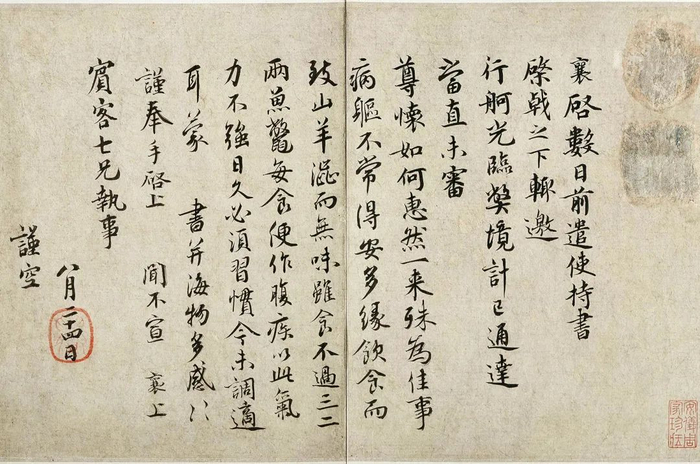 襄启數日前遣使持書
棨戟之下輙邀
行舸光臨獘境計已通達
當直未審
尊懷如何惠然一来殊為佳事
病軀不常得安多緣飲食而
致山羊澀而無味雖食不過三二
兩魚鼈每食便作腹疾以此氣
力不強日久必須習慣今未調適
耳蒙 書并海物多感〻
謹奉手啓上 聞不宣 襄上
賔客七兄執事
八月二十四日
謹空